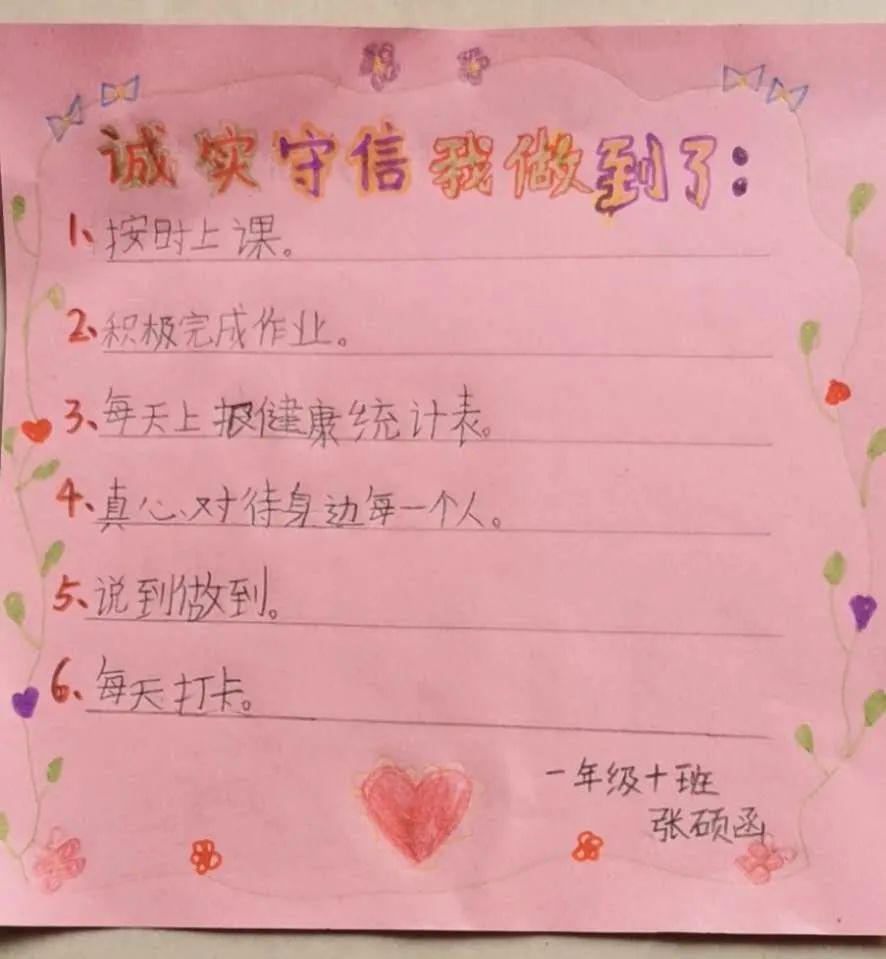 诚实守信我做到了：
1、按时上课。
2、积极完成作业。
3、每天上报健康统计表。
4、真心对待身边每一个人。
5、说到做到。
6、每天打卡。
一年级十班
张硕函